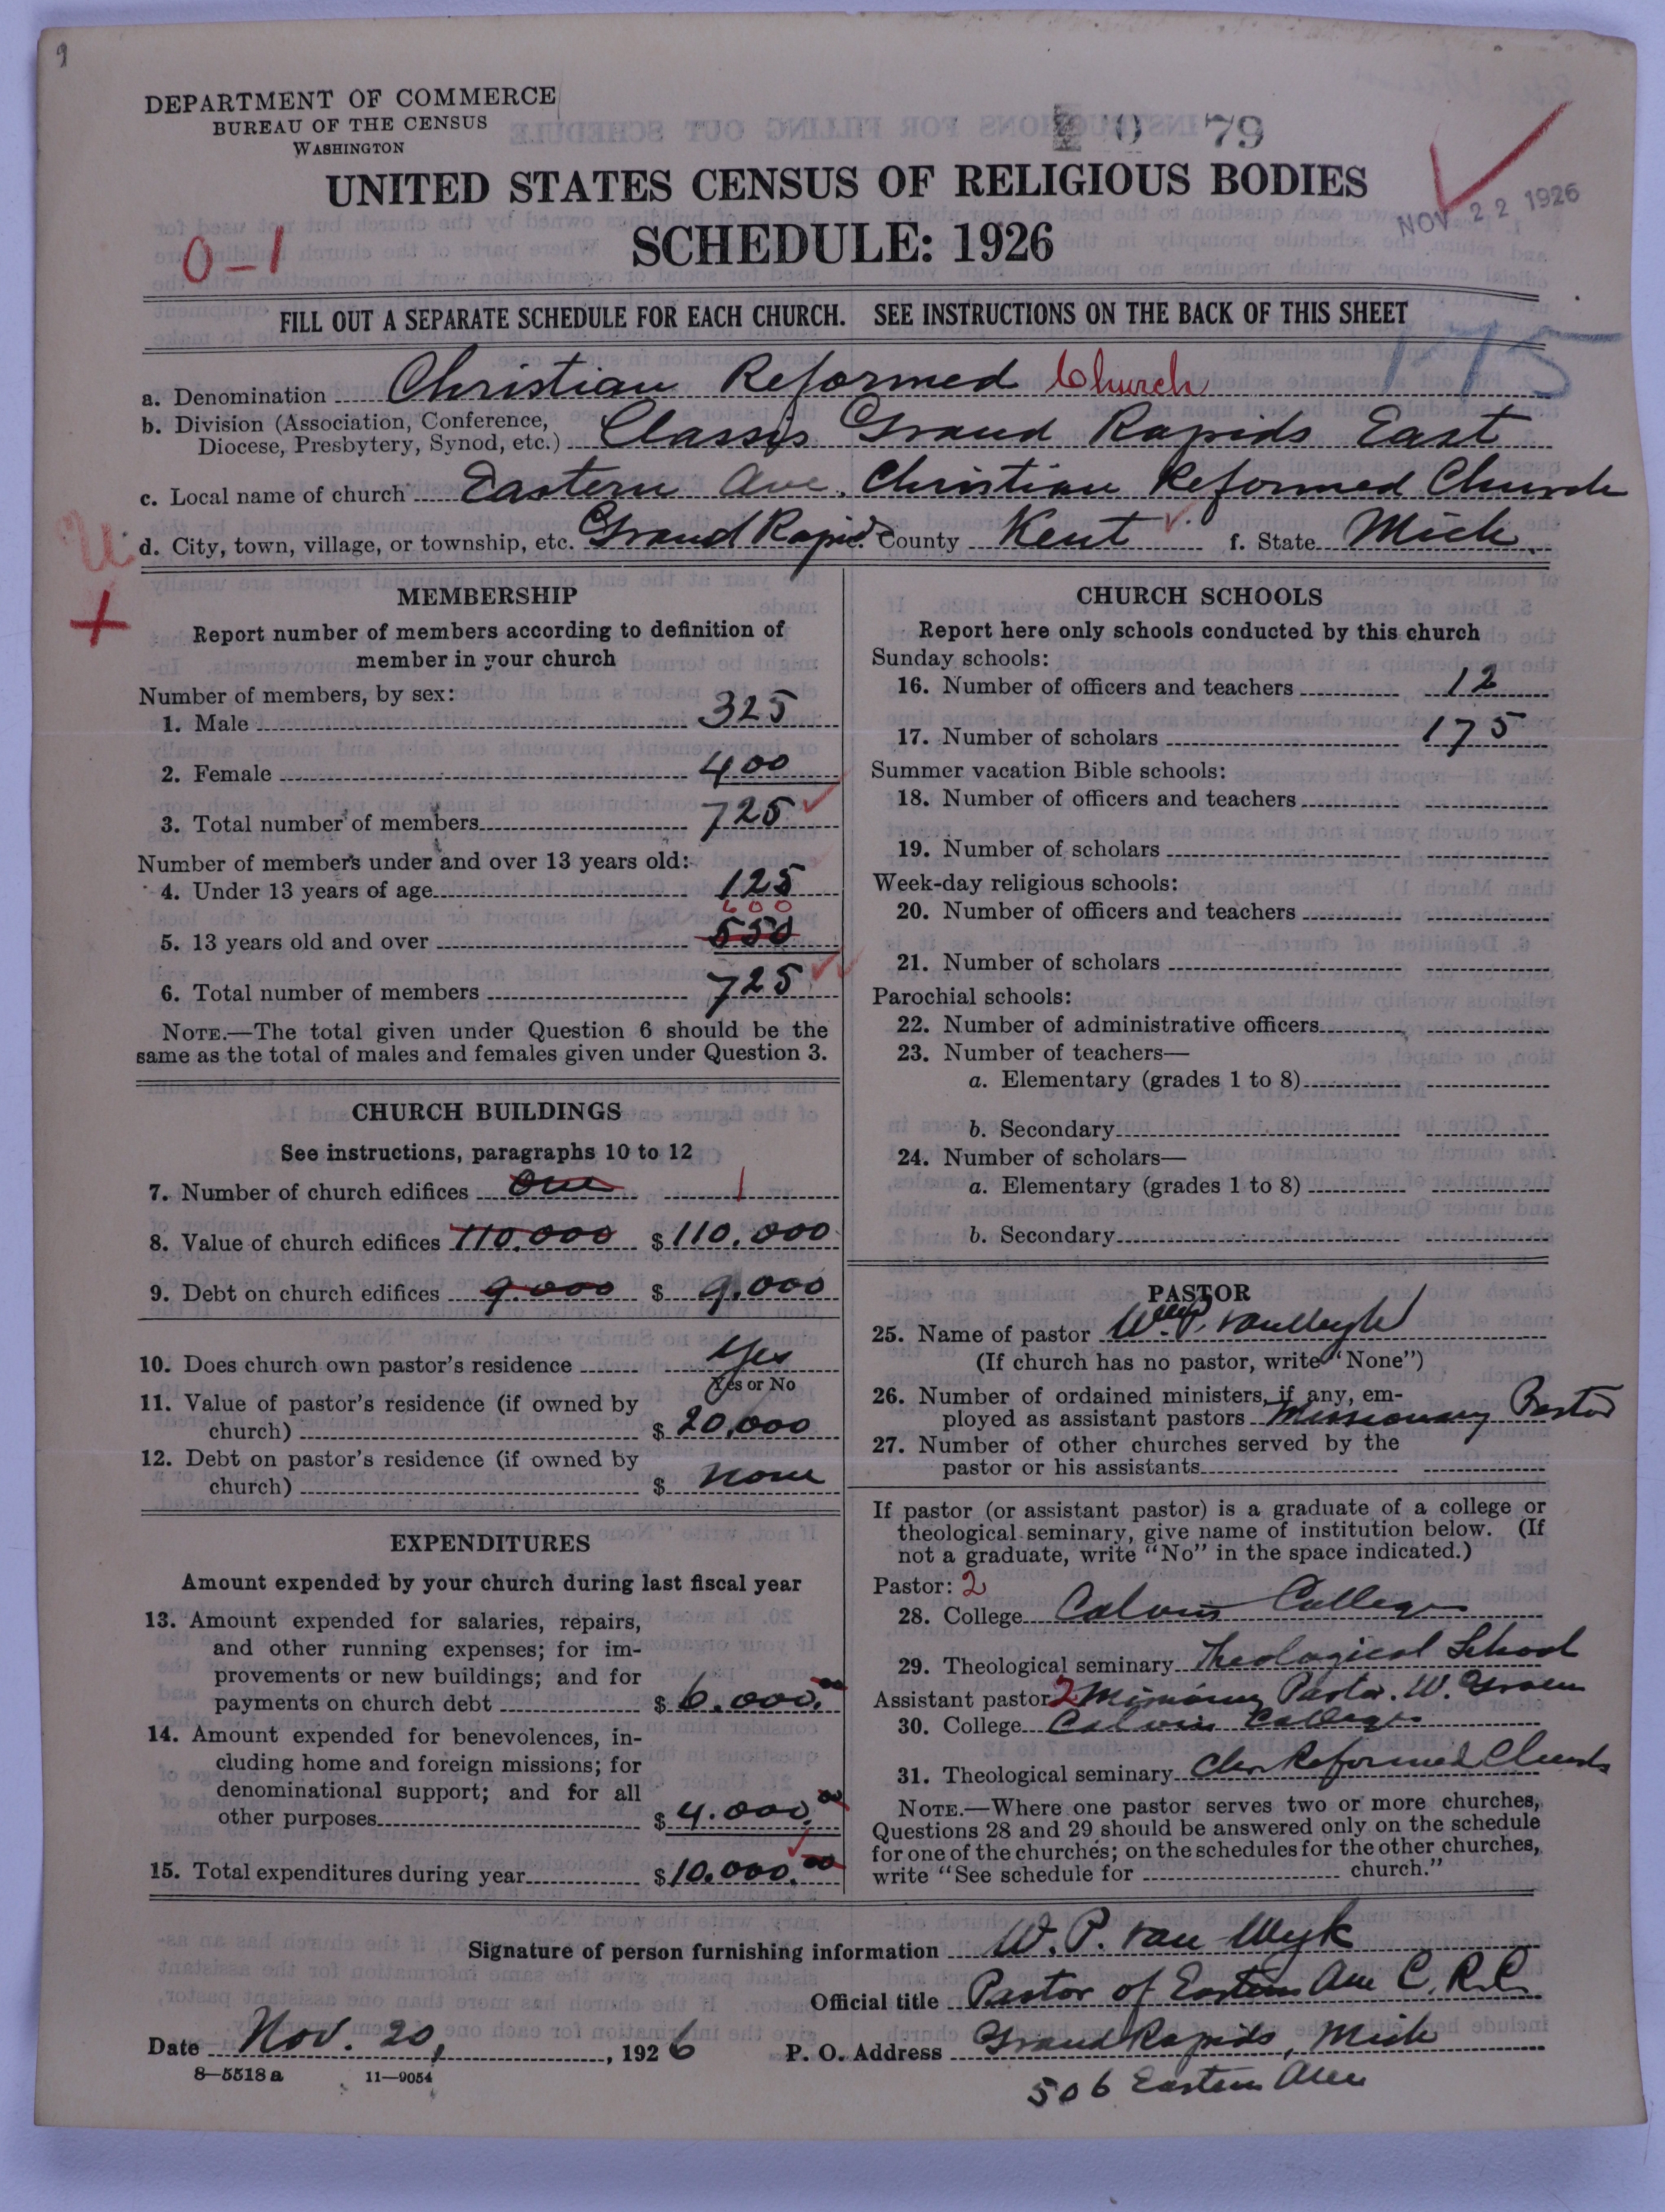 DEPARTMENT OF COMMERCE
BUREAU OF THE CENSUS
WASHINGTON
79
UNITED STATES CENSUS OF RELIGIOUS BODIES
SCHEDULE: 1926
NOV 22 1926
0-1
FILL OUT A SEPARATE SCHEDULE FOR EACH CHURCH. SEE INSTRUCTIONS ON THE BACK OF THIS SHEET
175
a. Denomination Christian Reformed Church
b. Division (Association, Conference,
Diocese, Presbytery, Synod, etc.) Classis Grand Rapids East
c. Local name of church Eastern Ave. Christian Reformed Church
d. City, town, village, or township, etc. Grand Rapids County Kent f. State Mich.
MEMBERSHIP
Report number of members according to definition of
member in your church
Number of members, by sex:
1. Male 325
2. Female 400
3. Total number of members 725
Number of members under and over 13 years old:
4. Under 13 years of age 125
600
5. 13 years old and over 550
6. Total number of members 725
NOTE.—The total given under Question 6 should be the
same as the total of males and females given under Question 3.
CHURCH BUILDINGS
See instructions, paragraphs 10 to 12
7. Number of church edifices One 1
8. Value of church edifices 110.000 $ 110.000
9. Debt on church edifices 9.000 $ 9.000
10. Does church own pastor's residence Yes
Yes or No
11. Value of pastor's residence (if owned by
church) $ 20,000
12. Debt on pastor's residence (if owned by
church) $ none
EXPENDITURES
Amount expended by your church during last fiscal year
13. Amount expended for salaries, repairs,
and other running expenses; for im-
provements or new buildings; and for
payments on church debt $ 6.000.00
14. Amount expended for benevolences, in-
cluding home and foreign missions; for
denominational support; and for all
other purposes $ 4.000.00
15. Total expenditures during year $ 10.000.00
CHURCH SCHOOLS
Report here only schools conducted by this church
Sunday schools:
16. Number of officers and teachers 12
17. Number of scholars 175
Summer vacation Bible schools:
18. Number of officers and teachers
19. Number of scholars
Week-day religious schools:
20. Number of officers and teachers
21. Number of scholars
Parochial schools:
22. Number of administrative officers
23. Number of teachers—
a. Elementary (grades 1 to 8)
b. Secondary
24. Number of scholars—
a. Elementary (grades 1 to 8)
b. Secondary
PASTOR
25. Name of pastor Wm. P. Van Wyk
(If church has no pastor, write "None")
26. Number of ordained ministers, if any, em-
ployed as assistant pastors Missionary Pastor
27. Number of other churches served by the
pastor or his assistants
If pastor (or assistant pastor) is a graduate of a college or
theological seminary, give name of institution below. (If
not a graduate, write "No" in the space indicated.)
Pastor: 2
28. College Calvin College
29. Theological seminary Theological School
Assistant pastor 2 Missionary Pastor. W.
30. College Calvin College
31. Theological seminary Chr Reformed Church
NOTE.—Where one pastor serves two or more churches,
Questions 28 and 29 should be answered only on the schedule
for one of the churches; on the schedules for the other churches,
write "See schedule for church."
Signature of person furnishing information W. P. Van Wyk
Official title Pastor of Eastern Ave C. R. C.
Date Nov. 20, 1926 P. O. Address Grand Rapids, Mich
506 Eastern Ave
8—5518a 11—9054